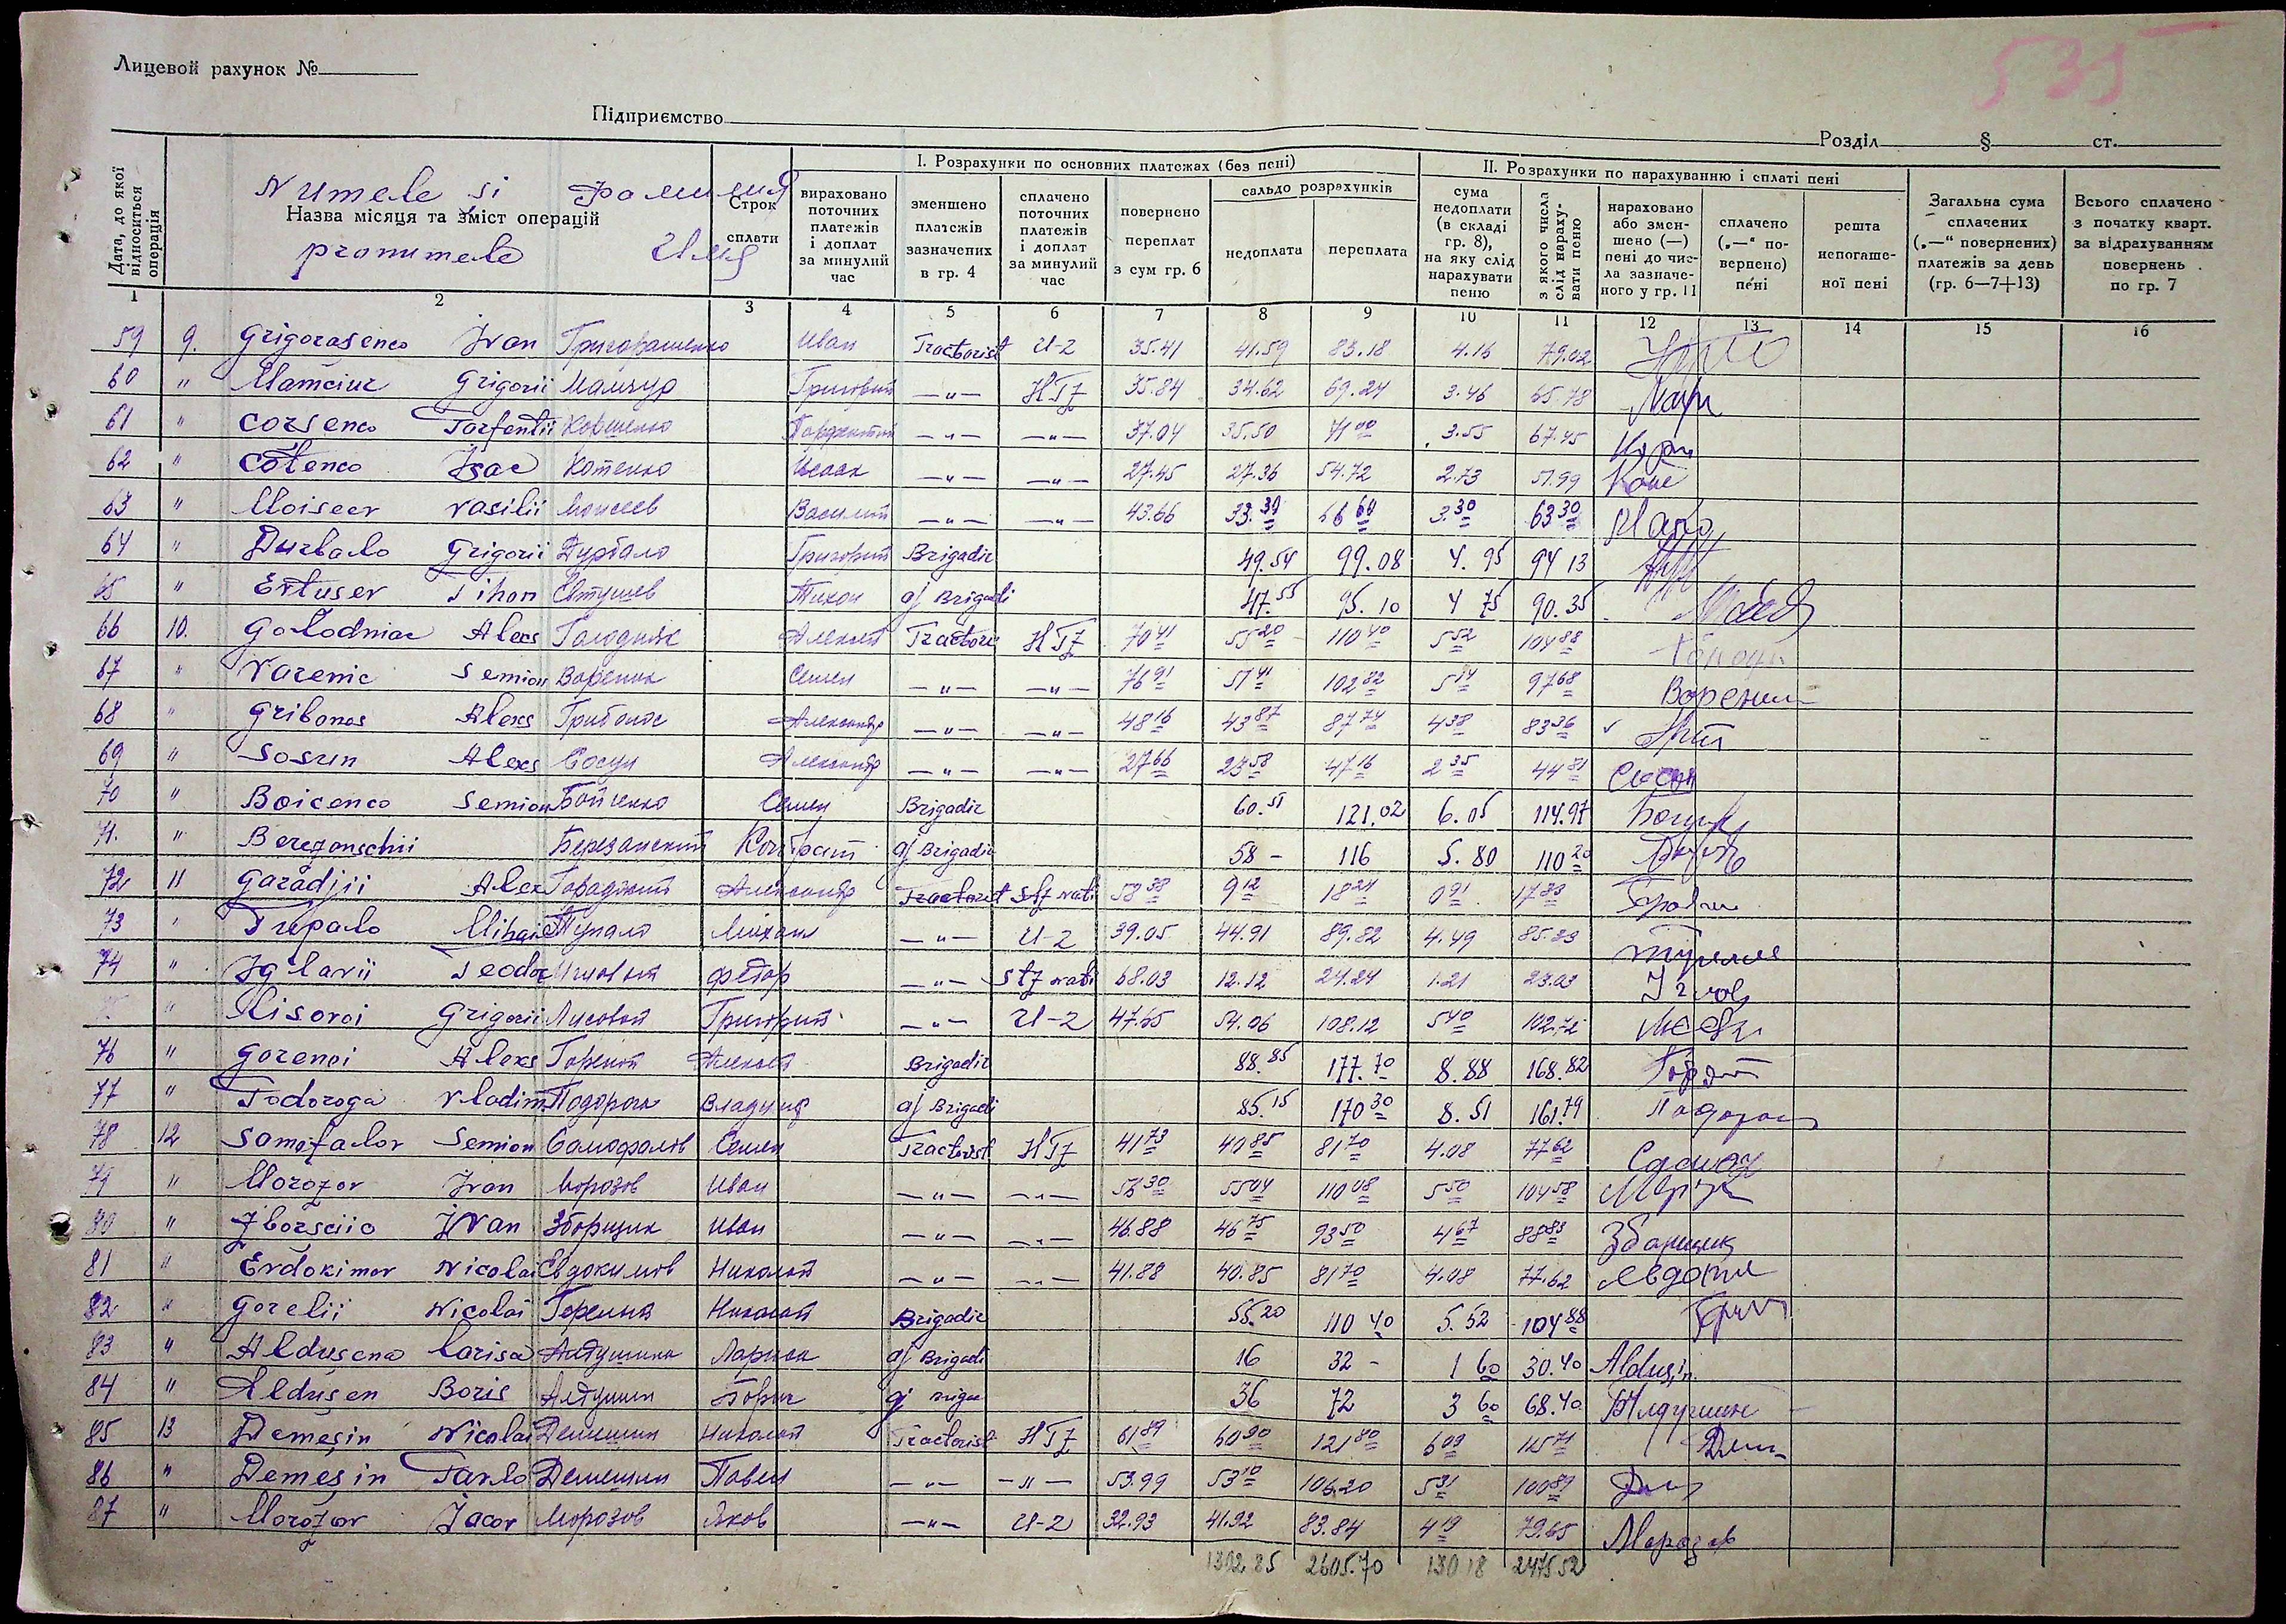 535
Лицевой рахунок №
Підприємство
Розділ § ст.
Дата, до якої відноситься операція
Numele si Фамилия
Назва місяця та зміст операцій
pronumele Имя
Строк сплати
I. Розрахунки по основних платежах (без пені)
вираховано поточних платежів і доплат за минулий час
зменшено платежів зазначених в гр. 4
сплачено поточних платежів і доплат за минулий час
повернено переплат з сум гр. 6
сальдо розрахунків
недоплата
переплата
II. Розрахунки по нарахуванню і сплаті пені
сума недоплати (в складі гр. 8), на яку слід нарахувати пеню
з якого числа слід нарахувати пеню
нараховано або зменшено (—) пені до числа зазначеного у гр. 11
сплачено („—“ повернено) пені
решта непогашеної пені
Загальна сума сплачених („—“ повернених) платежів за день (гр. 6—7+13)
Всього сплачено з початку кварт. за відрахуванням повернень по гр. 7
1 2 3 4 5 6 7 8 9 10 11 12 13 14 15 16
59 9. Grigorasenco Ivan Григорашенко Иван Tractorist U-2 35.41 41.59 83.18 4.16 79.02
60 " Mamciur Grigorii Мамчур Григорий —"— HTZ 35.84 34.62 69.24 3.46 65.78
61 " Corsenco Parfentii Коршенко Парфентий —"— —"— 37.04 35.50 71 00 3.55 67.45
62 " Cotenco Isac Котенко Исаак —"— —"— 27.45 27.36 54.72 2.73 51.99
63 " Moiseev Vasilii Моисеев Василий —"— —"— 43.66 33.30 66 60 3.30 63 30
64 " Durbalo Grigorii Дурбало Григорий Brigadir 49.54 99.08 4.95 94 13
65 " Evtusev Tihon Евтушев Тихон aj Brigadi 47.55 95.10 4 75 90.35
66 10. Golodniac Alecs Голодняк Алексей Tractori HTZ 70 41 55 20 110 40 5 52 104 88
67 " Varenic Semion Вареник Семен —"— —"— 76 91 51 41 102 82 5 14 97 68 Вореник
68 " Gribonos Alexs Грибонос Александр —"— —"— 48 16 43 87 87 74 4 38 83 36
69 " Sosun Alexs Сосун Александр —"— —"— 27 66 23 58 47 16 2 35 44 81 Сосун
70 " Boicenco Semion Бойченко Семен Brigadir 60.51 121.02 6.05 114.97
71. " Berezanschii Березанский Кондрат aj Brigadir 58 - 116 5.80 110 20
72 11 Garadjii Alex Гораджий Александр Tractorist Stz nati 58 38 9 12 18 24 0 91 17 33
73 " Tupalo Mihail Тупало Михаил —"— U-2 39.05 44.91 89.82 4.49 85.33
74 " Iglavii Teodor Игловый Фёдор —"— Stz nati 68.03 12.12 24.24 1.21 23.03
" Lisovoi Grigorii Лисовой Григорий —"— U-2 47.65 54.06 108.12 5 40 102.72
76 " Gorenoi Alexs Гореной Алексей Brigadir 88.85 177.70 8.88 168.82
77 " Podoroga Vladim Подорога Владимир aj Brigadi 85.15 170 30 8.51 161.79
78 12 Samofalov Semion Самофалов Семен Tractorist HTZ 41 73 40 85 81 70 4.08 77 62
79 " Morozov Ivan Морозов Иван —"— —"— 56 30 55 04 110 08 5 50 104 58
80 " Zborsciic Ivan Зборщик Иван —"— —"— 46.88 46 75 93 50 4 67 88 83 Зборщик
81 " Evdokimov Nicolai Евдокимов Николай —"— —"— 41.88 40.85 81 70 4.08 77.62
82 " Gorelii Nicolai Горелый Николай Brigadir 55.20 110 40 5.52 104 88
83 " Aldusena Larisa Алдушина Лариса aj Brigadi 16 32 - 1 60 30.40 Alduşin.
84 " Aldusen Boris Алдушин Борис 36 72 3 60 68.40
85 13 Demeşin Nicolai Демешин Николай Tractorist HTZ 61 89 60 90 121 80 6 09 115 71
86 " Demeşin Pavlo Демешин Павел —"— —"— 53.99 53 10 106.20 5 31 100 89
87 " Morozov Iacov Морозов Яков —"— U-2 32.93 41.92 83.84 4 19 79.65 Морозов
1302.85 2605.70 130.18 2475 52